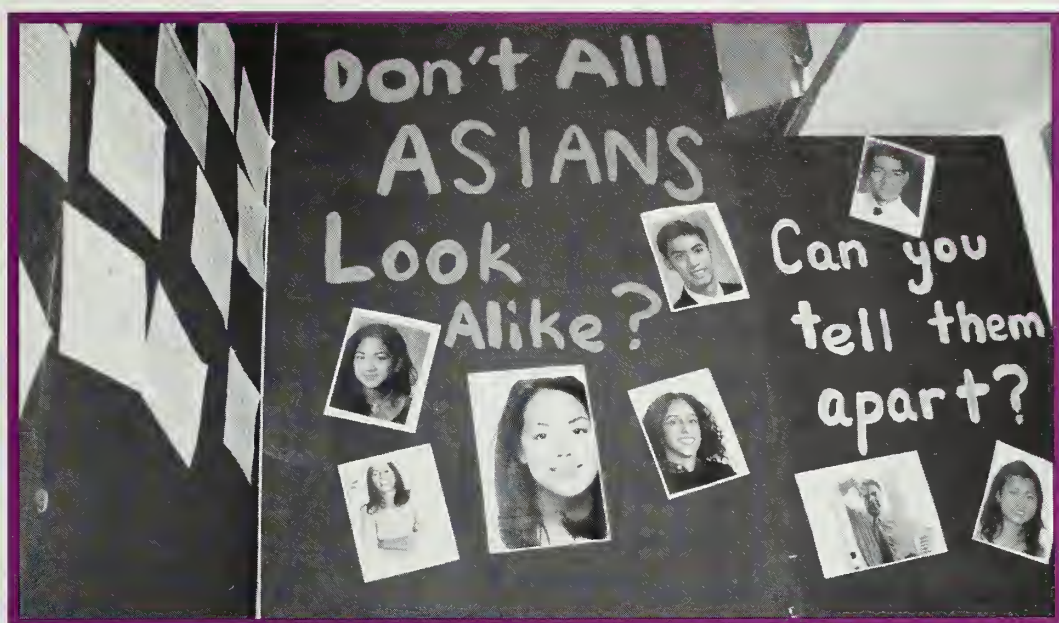 Don't All
ASIANS
Look
Alike?
Can you
tell them
apart?